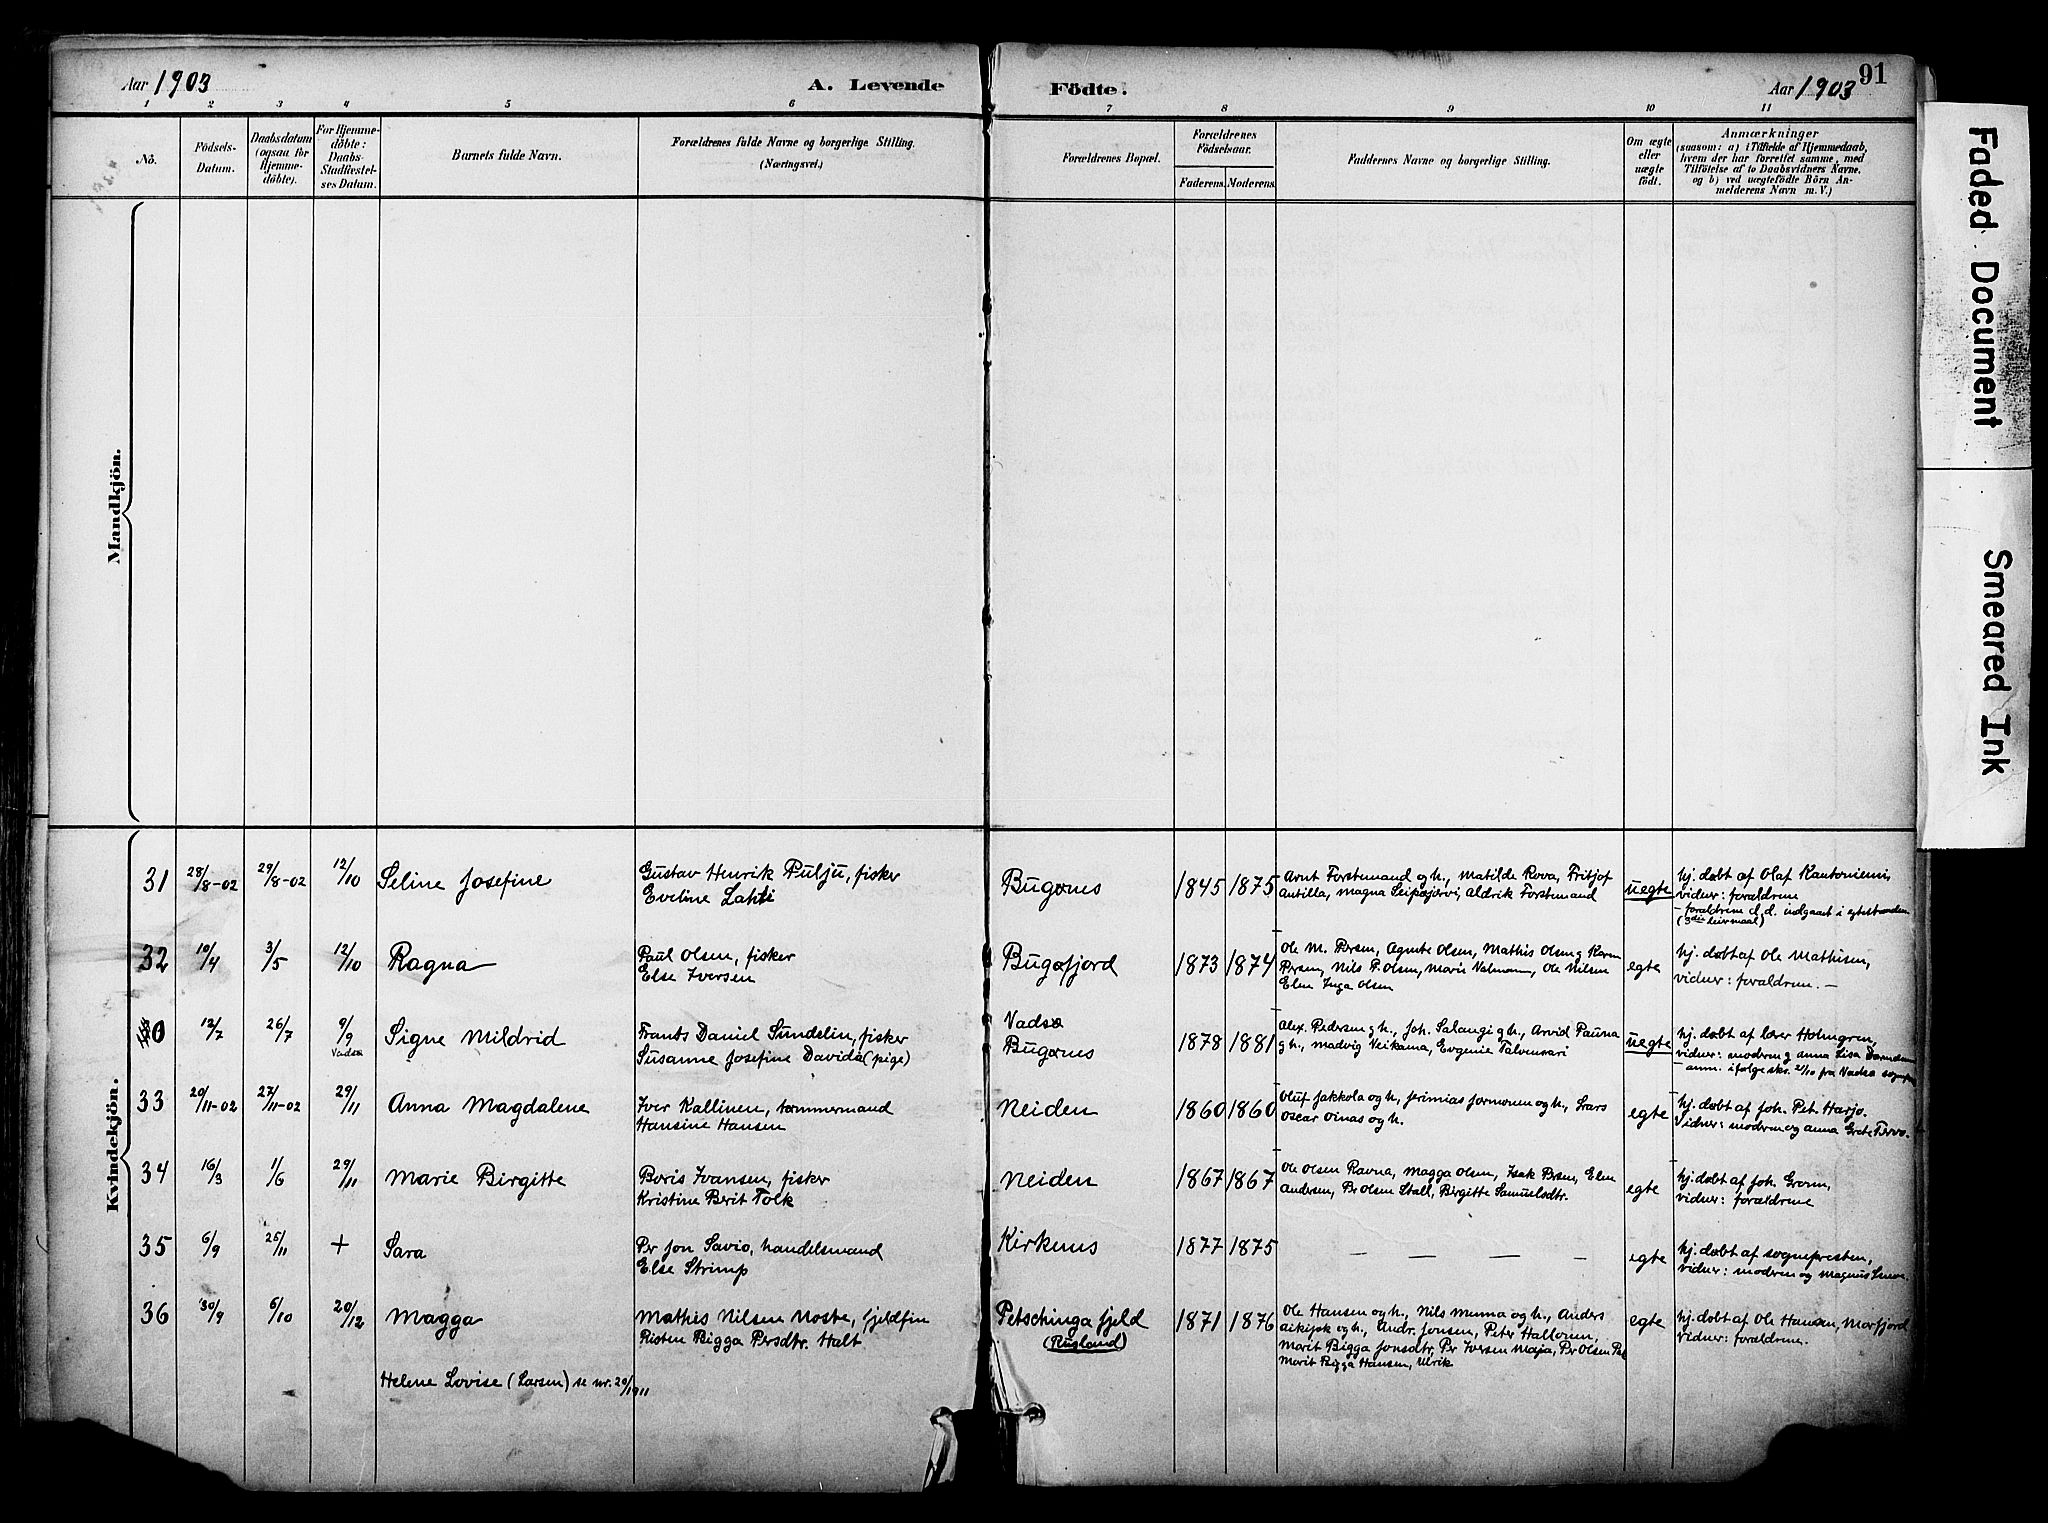 Aar 1903 A. Levende Födte. Aar 1903 91
1 2 3 4 5 6 7 8 9 10 11
No. Födsels-Datum. Daabsdatum (ogsaa for Hjemmedöbte). For Hjemmedöbte: Daabs-Stadfæstelses Datum. Barnets fulde Navn. Forældrenes fulde Navne og borgerlige Stilling. (Næringsvei.) Forældrenes Bopæl. Forældrenes Födselsaar. Faderens. Moderens. Faddernes Navne og borgerlige Stilling. Om ægte eller uægte födt. Anmærkninger (saasom: a) i Tilfælde af Hjemmedaab, hvem der har forrettet samme, med Tilföielse af to Daabsvidners Navne. og b) ved uægtefödte Börn Anmelderens Navn m. V.)
Mandkjön.
Kvindekjön.
31 28/8-02 29/8-02 12/10 Seline Josefine
Gustav Henrik Pulju, fisker
Eveline Lahti
Bugønes 1845 1875
Arnt Forstmand og h., Matilde Rova, Fritjof
Antilla, Magna Leipæjærvi, Aldrik Forstmand
uegte
hj. døbt af Olaf Kantoniemi,
vidner: forældrene
- forældrene d. d. indgaaet i egtestanden
(3die leiermaal)
32 10/4 3/5 12/10 Ragna
Paul Olsen, fisker
Else Iversen
Bugøfjord 1873 1874
Ole M. Persen, Agnete Olsen, Mathis Olsen og Karen
Persen, Nils P. Olsen, Marie Nilsen, Ole Nilsen
Elen Inga Olsen
egte
hj. døbt af Ole Mathisen,
vidner: forældrene. -
0 12/7 26/7 9/9 Vadsø Signe Mildrid
Frants Daniel Sundelin, fisker
Susanne Josefine Davida (pige)
Vadsø
Bugønes
1878 1881
Alex. Pedersen og h., Joh. Salangi og h., Arvid Pauna
og h., Madvig Veikama, Evgenie Talvensari
uegte
hj. døbt af lærer Holmgren,
vidner: moderen og Anna Lisa
- anm. ifølge skr. 21/10 fra Vadsø sognepr.
33 20/11-02 27/11-02 29/11 Anna Magdalene
Iver Kallinen, tømmermand
Hansine Hansen
Neiden 1860 1860
Oluf Jakkola og h., Jerimias Jormonen og h., Lars
Oscar Oinas og h.
egte
hj. døbt af Joh. Pet. Harjo.
Vidner: moderen og Anna Grete Tervo.
34 16/3 1/6 29/11 Marie Birgitte
Boris Ivansen, fisker
Kristine Berit Tolk
Neiden 1867 1867
Ole Olsen Ravna, Magga Olsen, Isak Persen, Elen
Andersen, Pr Olsen Stall, Birgitte Samuelsdtr.
egte
hj. døbt af Joh. Grønn,
vidner: forældrene
35 6/9 25/11 + Sara
Per Jon Savio, handelsmand
Else Strimp
Kirkenes 1877 1875 - - - -
egte
hj. døbt af sognepresten,
vidner: moderen og Magnus
36 30/9 6/10 20/12 Magga
Mathis Nilsen Noste, fjeldfin
Risten Bigga Persdtr. Halt
Petschinga fjeld
(Rusland)
1871 1876
Ole Hansen og h., Nils Menna og h., Anders
Aikipk og h., Andr. Jonsen, Peter Hallonen,
Marit Bigga Jonsdtr, Per Iversen Maja, Pr Olsen
Marit Bigga Hansen, Ulrik
egte
hj. døbt af Ole Hansen, Morfjord
vidner: forældrene.
Helene Lovise (Larsen) se nr. 20/1911
Faded Document
Smeared Ink